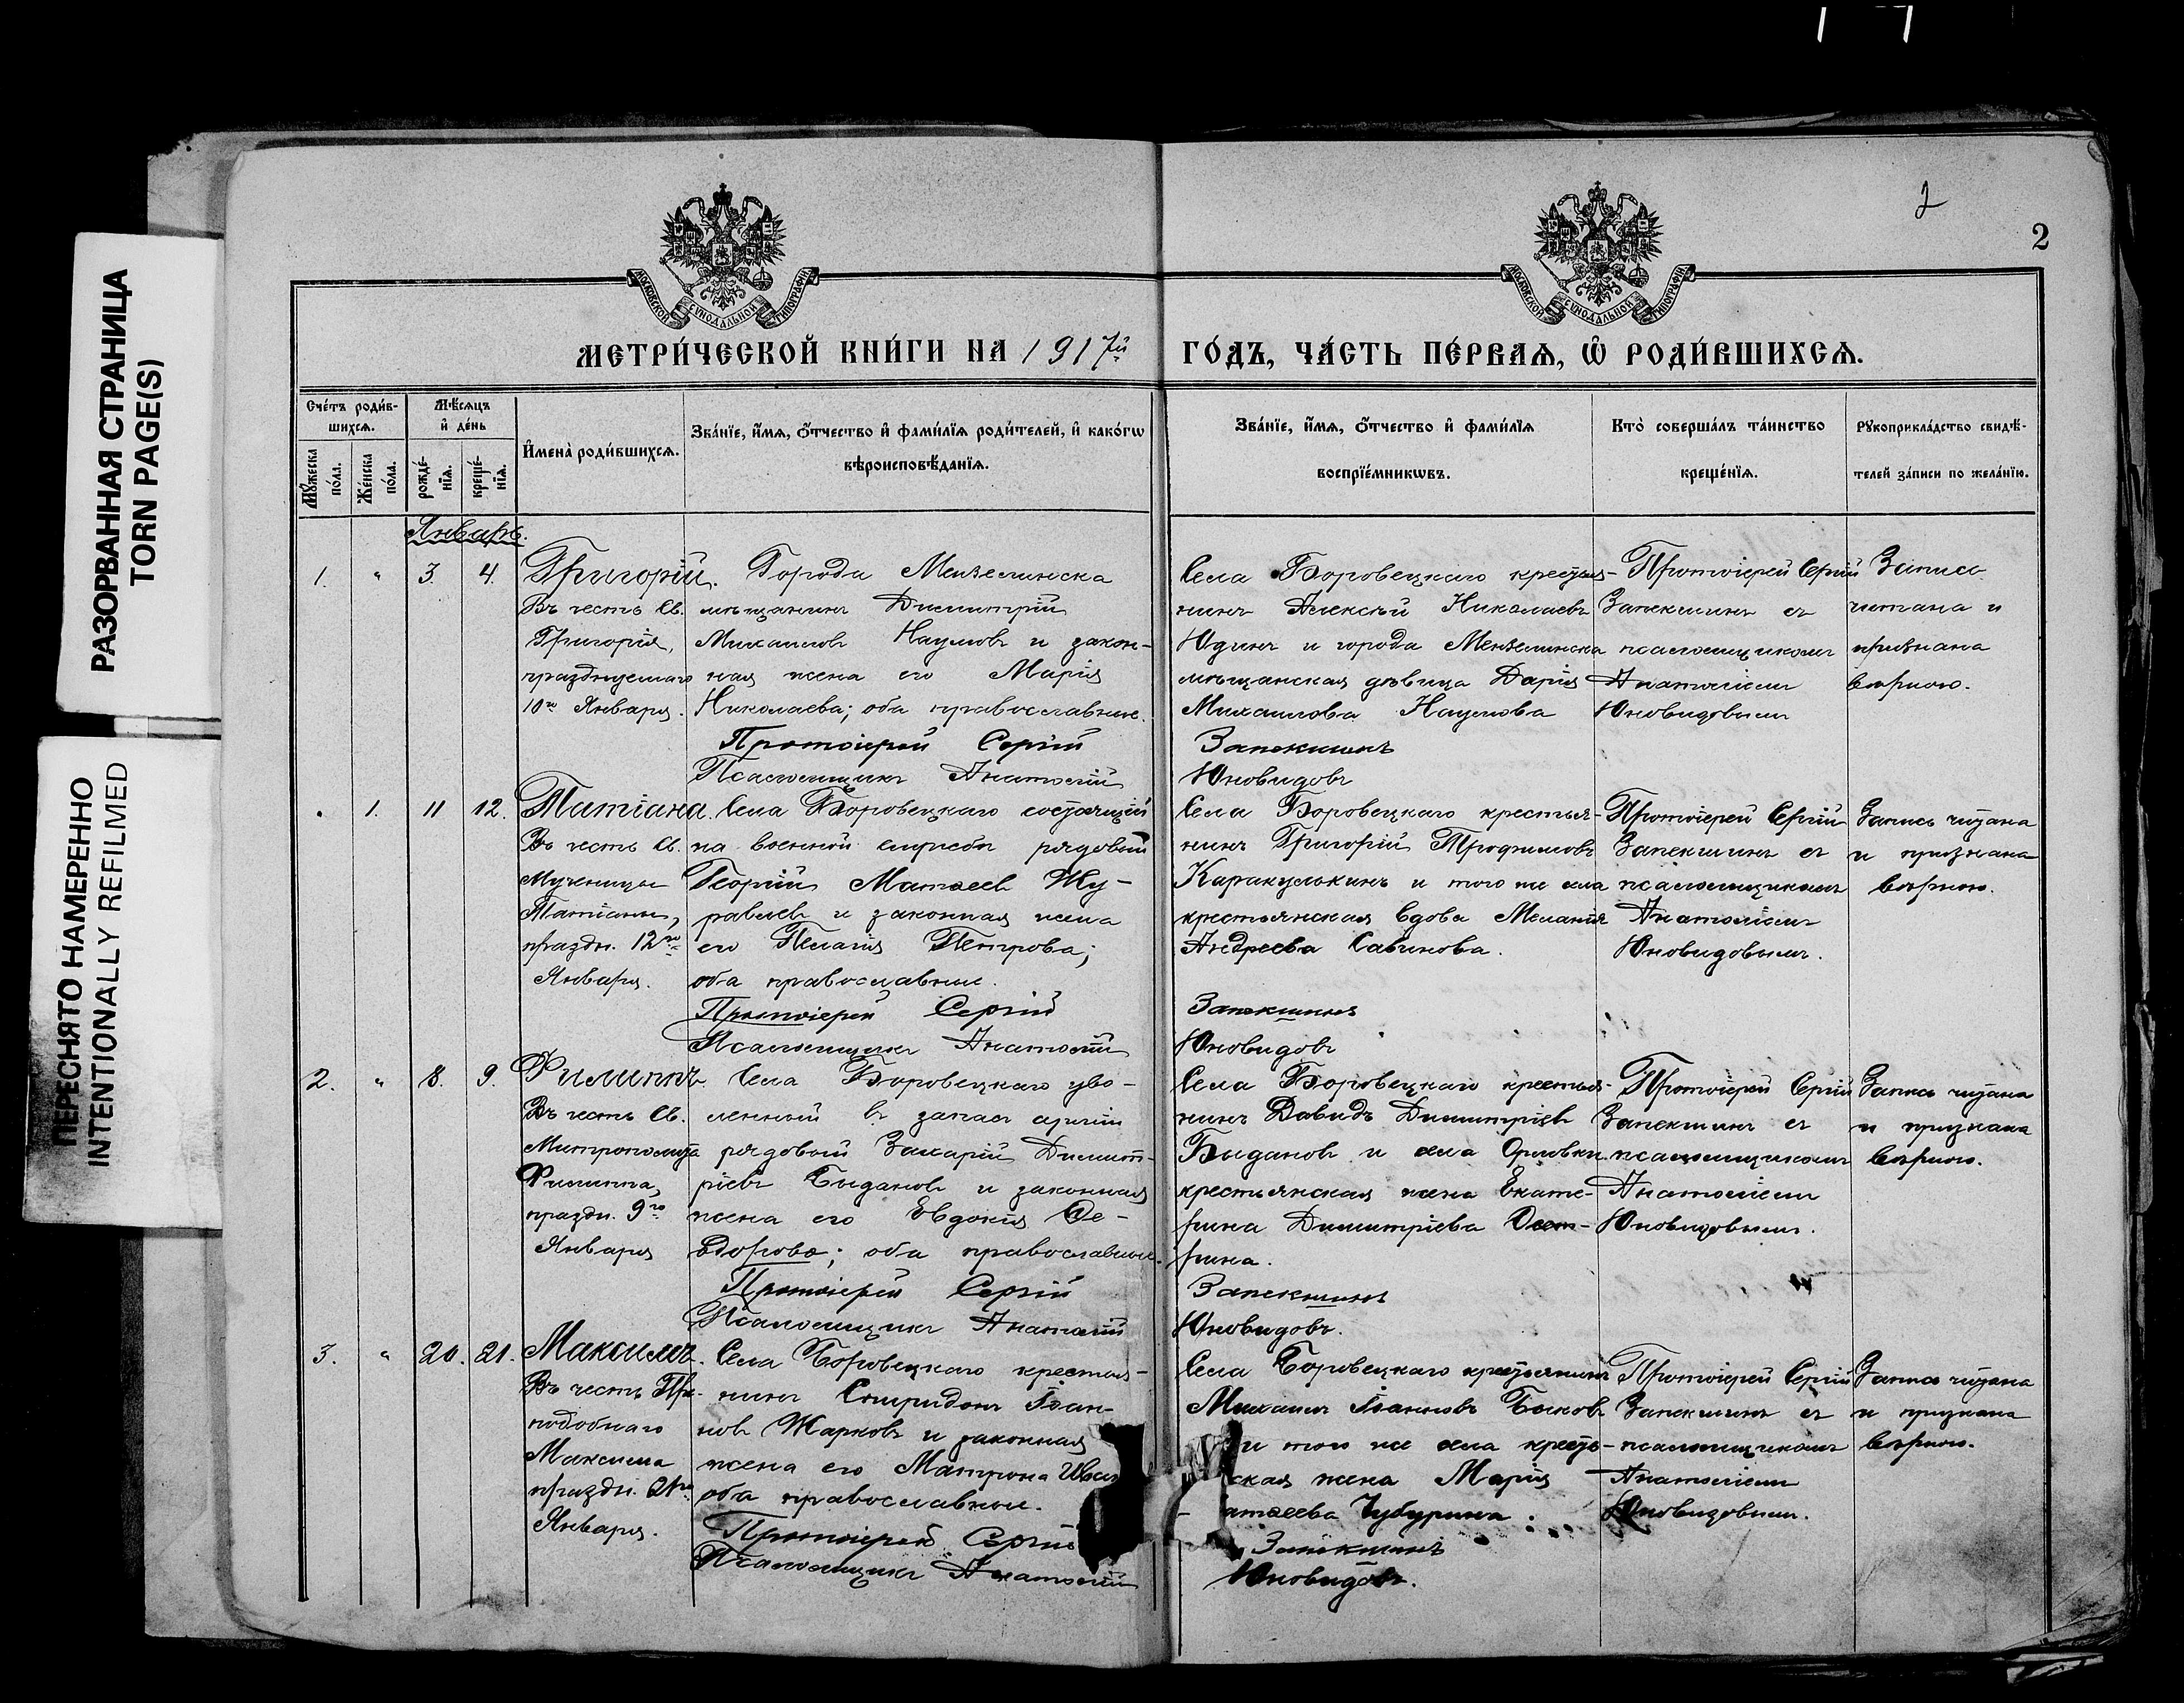 РАЗОРВАННАЯ СТРАНИЦА
TORN PAGE(S)
ПЕРЕСНЯТО НАМЕРЕННО
INTENTIONALLY REFILMED
2
2
МОСКОВСКОЙ СѴНОДАЛЬНОЙ ТИПОГРАФІИ
МОСКОВСКОЙ СѴНОДАЛЬНОЙ ТИПОГРАФІИ
МЕТРИ́ЧЕСКОЙ КНИ́ГИ НА 1917й ГО́ДЪ, ЧА́СТЬ ПЕ́РВАѦ, Ѡ҆ РОДИ́ВШИХСѦ.
Сче́тъ роди́в-
шихсѧ.
Мѣ́сѧцъ
и҆ де́нь
Мꙋ́жеска
по́ла.
Же́нска
по́ла.
рожде́-
нїѧ.
креще́-
нїѧ.
И҆мена̀ роди́вшихсѧ.
Зва́нїе, и҆́мѧ, ѻ҆́тчество и҆ фами́лїѧ роди́телей, и҆ како́гѡ
вѣроисповѣ́данїѧ.
Зва́нїе, и҆́мѧ, ѻ҆́тчество и҆ фами́лїѧ
воспрїе́мникѡвъ.
Кто̀ соверша́лъ та́инство
креще́нїѧ.
Рꙋкоприкла́дство свидѣ́-
телей за́писи по жела́нїю.
Январь.
1. " 3. 4. Григорій.
Въ честь Св.
Григорія,
празднуемаго
10го Января.
Города Мензелинска
мѣщанинъ Димитрій
Михаиловъ Наумовъ и закон-
ная жена его Марія
Николаева; оба православные.
Протоіерей Сергій
Псаломщикъ Анатолій
Села Боровецкаго крестья-
нинъ Алексѣй Николаевъ
Юдинъ и города Мензелинска
мѣщанская дѣвица Дарія
Михаилова Наумова
Запекшинъ
Юновидовъ
Протоіерей Сергій
Запекшинъ съ
псаломщикомъ
Анатоліемъ
Юновидовымъ
Запись
читана и
признана
вѣрною.
" 1. 11 12. Татіана.
Въ честь Св.
Мученицы
Татіаны,
праздн. 12го
Января.
Села Боровецкаго состоящій
на военной службѣ рядовый
Георгій Матвеевъ Жу-
равлевъ и законная жена
его Пелагія Петрова;
оба православные.
Протоіерей Сергій
Псаломщикъ Анатолій
Села Боровецкаго крестья-
нинъ Григорій Трофимовъ
Каракулькинъ и того же села
крестьянская вдова Меланія
Андреева Савинова.
Запекшинъ
Юновидовъ
Протоіерей Сергій
Запекшинъ съ
псаломщикомъ
Анатоліемъ
Юновидовымъ.
Запись читана
и признана
вѣрною.
2. " 8. 9. Филиппъ.
Въ честь Св.
Митрополита
Филиппа,
праздн. 9го
Января
Села Боровецкаго уво-
ленный въ запасъ арміи
рядовый Захарій Димит-
ріевъ Быдановъ и законная
жена его Евдокія Ѳе-
одорова; оба православные.
Протоіерей Сергій
Псаломщикъ Анатолій
Села Боровецкаго крестья-
нинъ Давидъ Димитріевъ
Быдановъ и села Орловки
крестьянская жена Екате-
рина Димитріева
Запекшинъ
Юновидовъ.
Протоіерей Сергій
Запекшинъ съ
псаломщикомъ
Анатоліемъ
Юновидовымъ.
Запись читана
и признана
вѣрною.
3. " 20. 21. Максимъ.
Въ честь Пре-
подобнаго
Максима
праздн. 21го
Января.
Села Боровецкаго крестья-
нинъ Спиридонъ Іоан-
новъ Жарковъ и законная
жена его Матрона
оба православные.
Протоіерей Сергій
Псаломщикъ Анатолій
Села Боровецкаго крестьянинъ
Михаилъ Іоанновъ Быковъ
и того же села кресть-
ская жена Марія
атвеева Чубурина.
Запекшинъ
Юновидовъ.
Протоіерей Сергій
Запекшинъ съ
псаломщикомъ
Анатоліемъ
Юновидовымъ.
Запись читана
и признана
вѣрною.